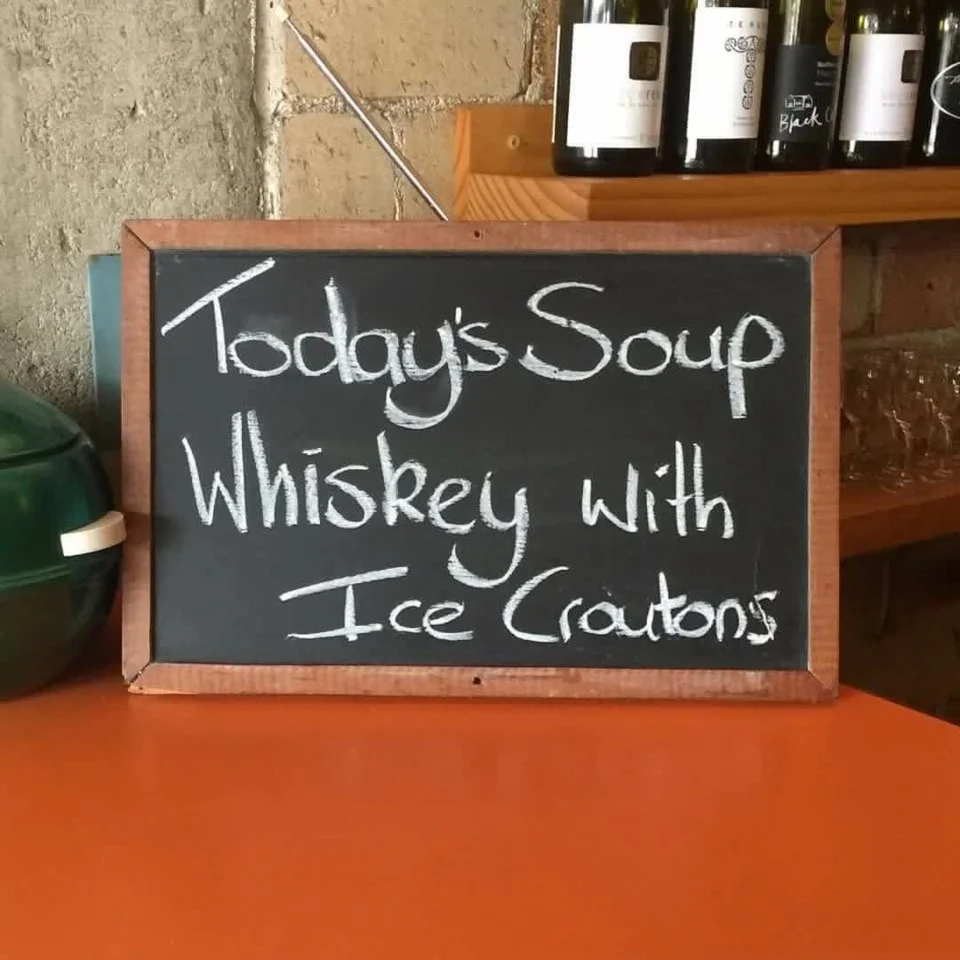 Today's Soup
Whiskey with
Ice Croutons
Black